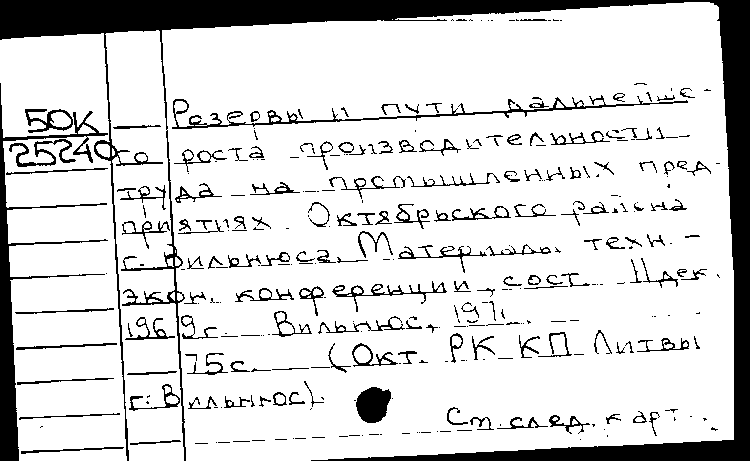 50К
25240
Резервы и пути дальнейше-
го роста производительности
труда на промышленных пред-
приятиях Октябрьского района
г. Вильнюса. Материалы техн.-
экон. конференции, сост. 11 дек.
1969г. Вильнюс, 1971.
75с. (Окт. РК КП Литвы
г. Вильнюс).
См. след. карт.